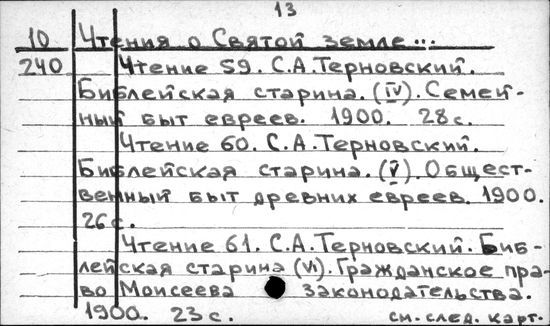 13
10 Чтения о Святой земле...
240 Чтение 59. С.А.Терновский.
Библейская старина. (IV). Семей-
ный быт евреев. 1900. 28 с.
Чтение 60. С.А.Терновский.
Библейская старина. (V). Общест-
венный быт древних евреев. 1900.
26 с.
Чтение 61. С.А.Терновский. Биб-
лейская старина (VI). Гражданское пра-
во Моисеева законодательства.
1900. 23 с. см. след. карт.